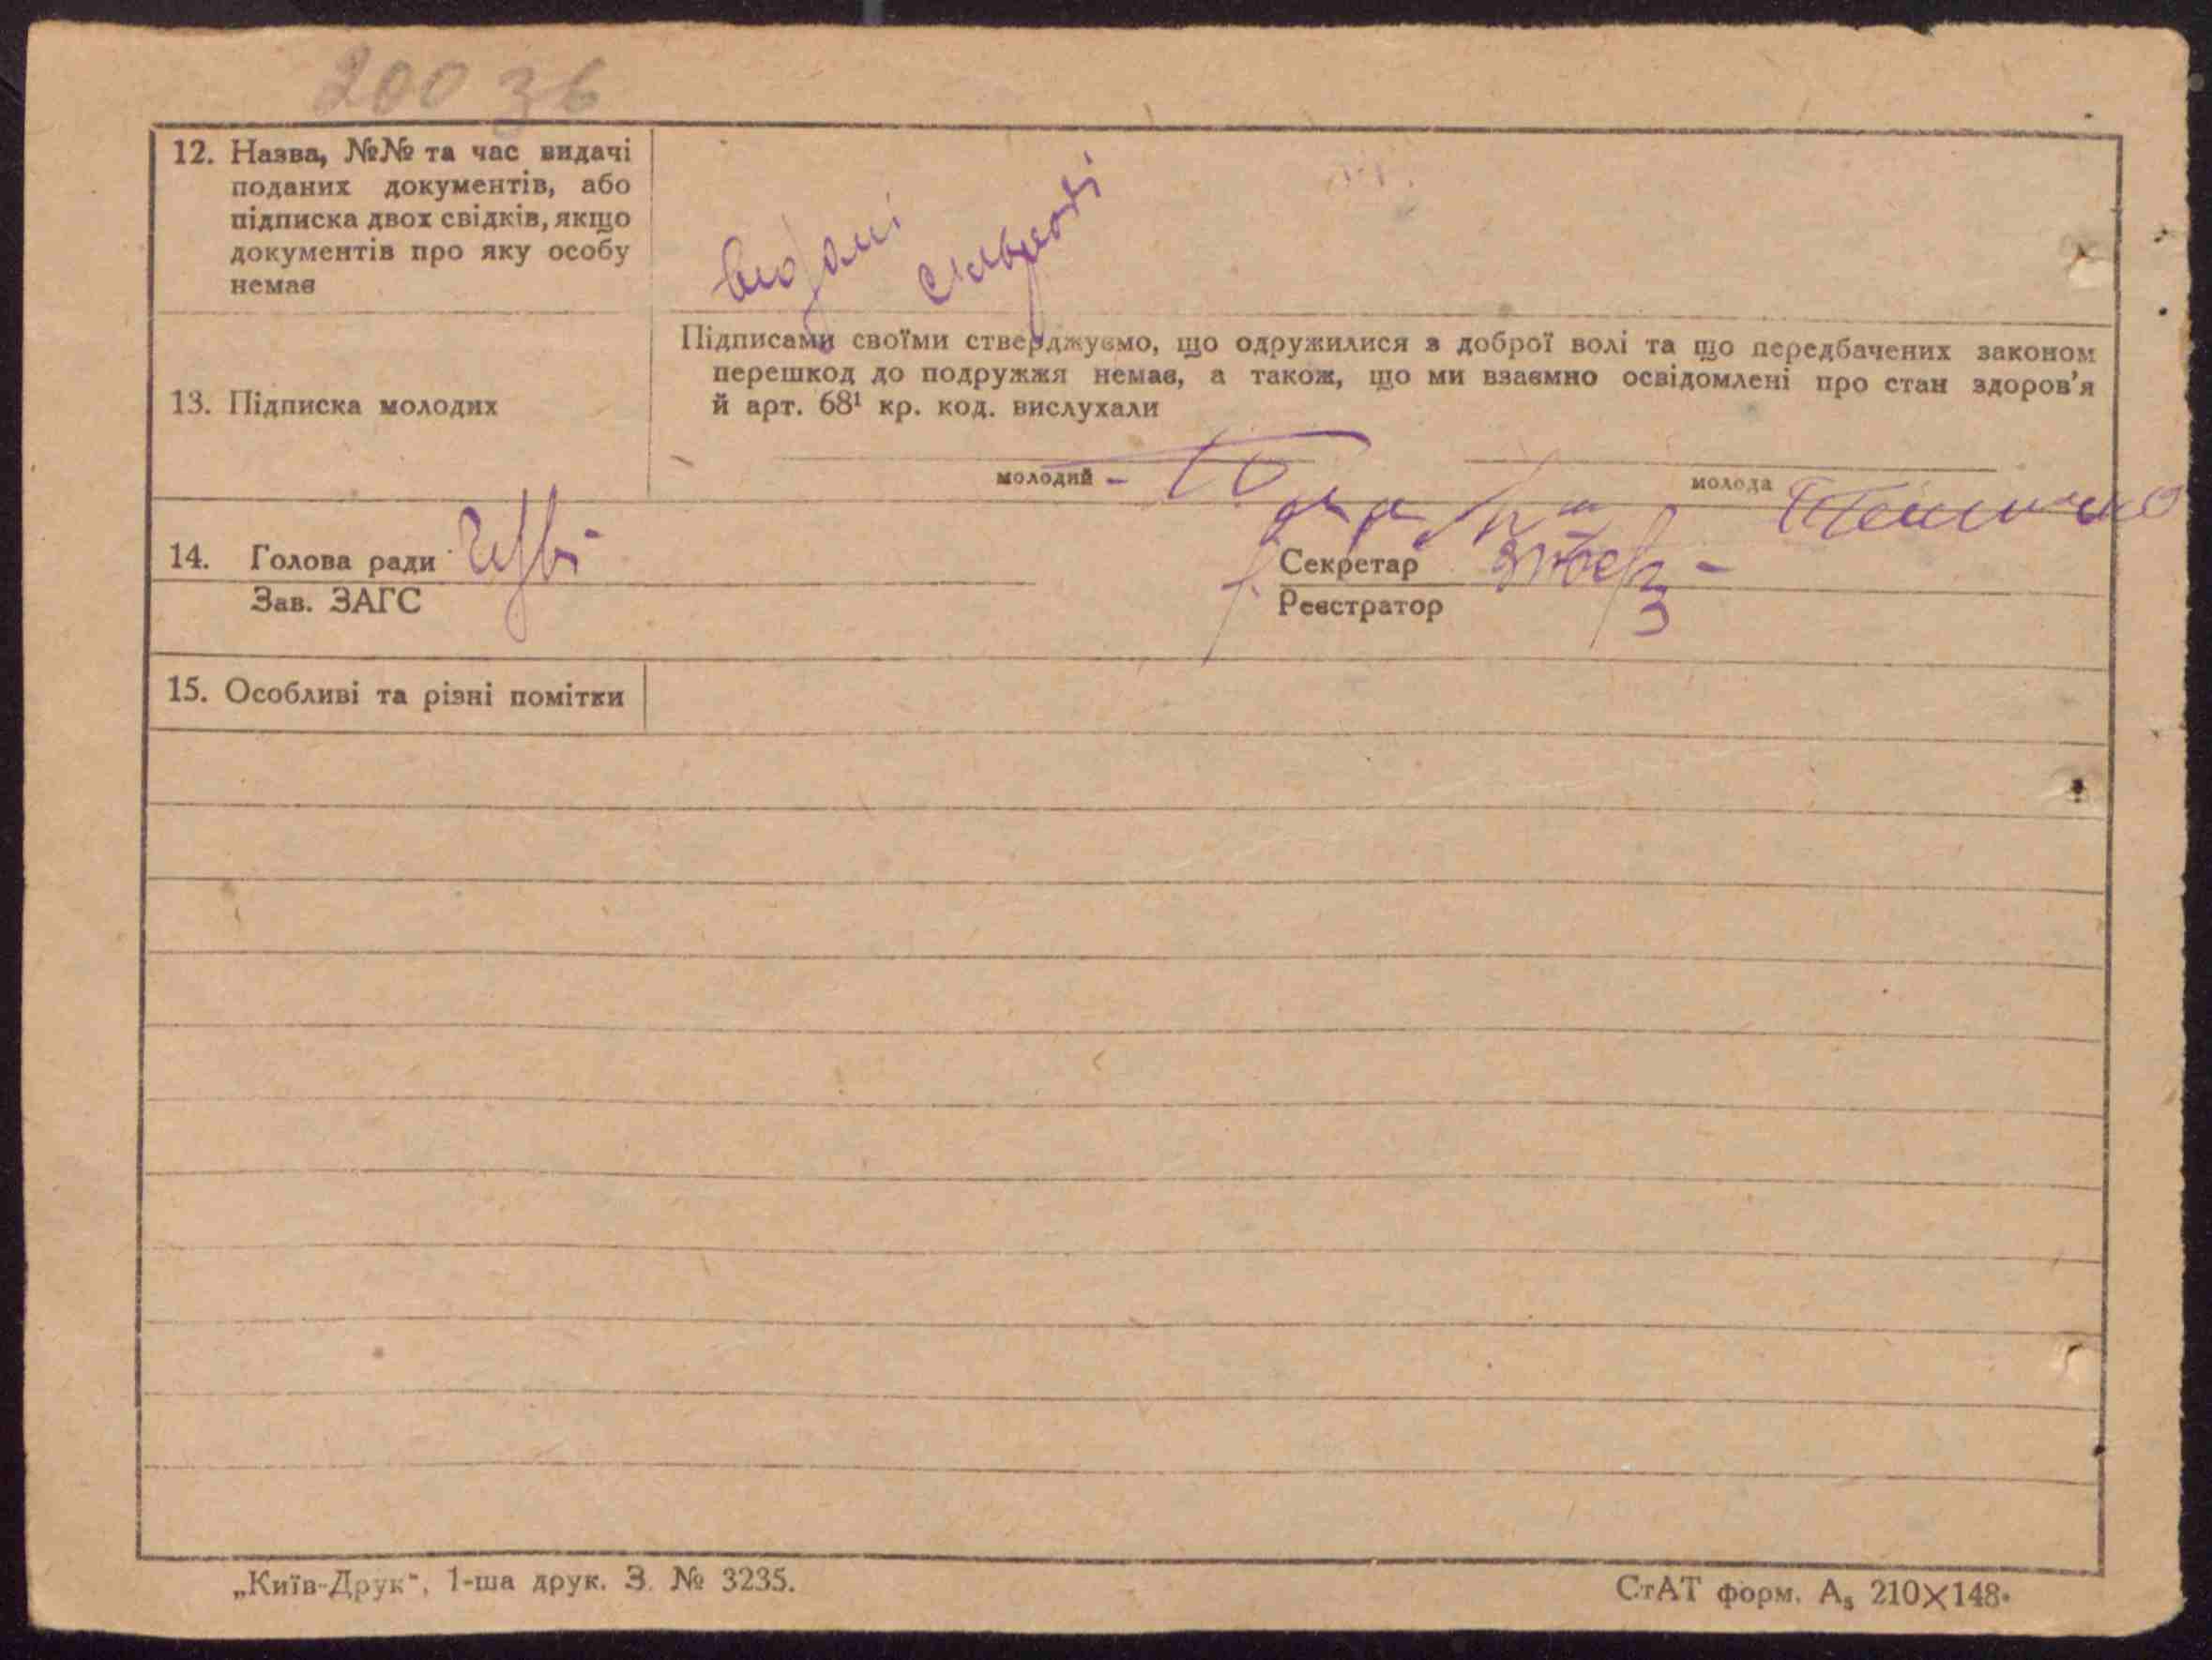 200 зб
12. Назва, №№ та час видачі
поданих документів, або
підписка двох свідків, якщо
документів про яку особу
немає
відомі сільраді
13. Підписка молодих
Підписами своїми стверджуємо, що одружилися з доброї волі та що передбачених законом
перешкод до подружжя немає, а також, що ми взаємно освідомлені про стан здоров'я
й арт. 68¹ кр. код. вислухали
молодий –
молода
14. Голова ради
Зав. ЗАГС
Секретар
Реєстратор
15. Особливі та різні помітки
„Київ-Друк“, 1-ша друк. З. № 3235.
СтАТ форм. А₅ 210×148.